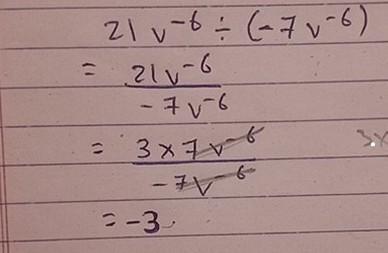 21 v⁻⁶ ÷ (-7 v⁻⁶)
= 21v⁻⁶
- 7v⁻⁶
= 3 × 7 v⁻⁶
- 7v⁻⁶
= -3
3x